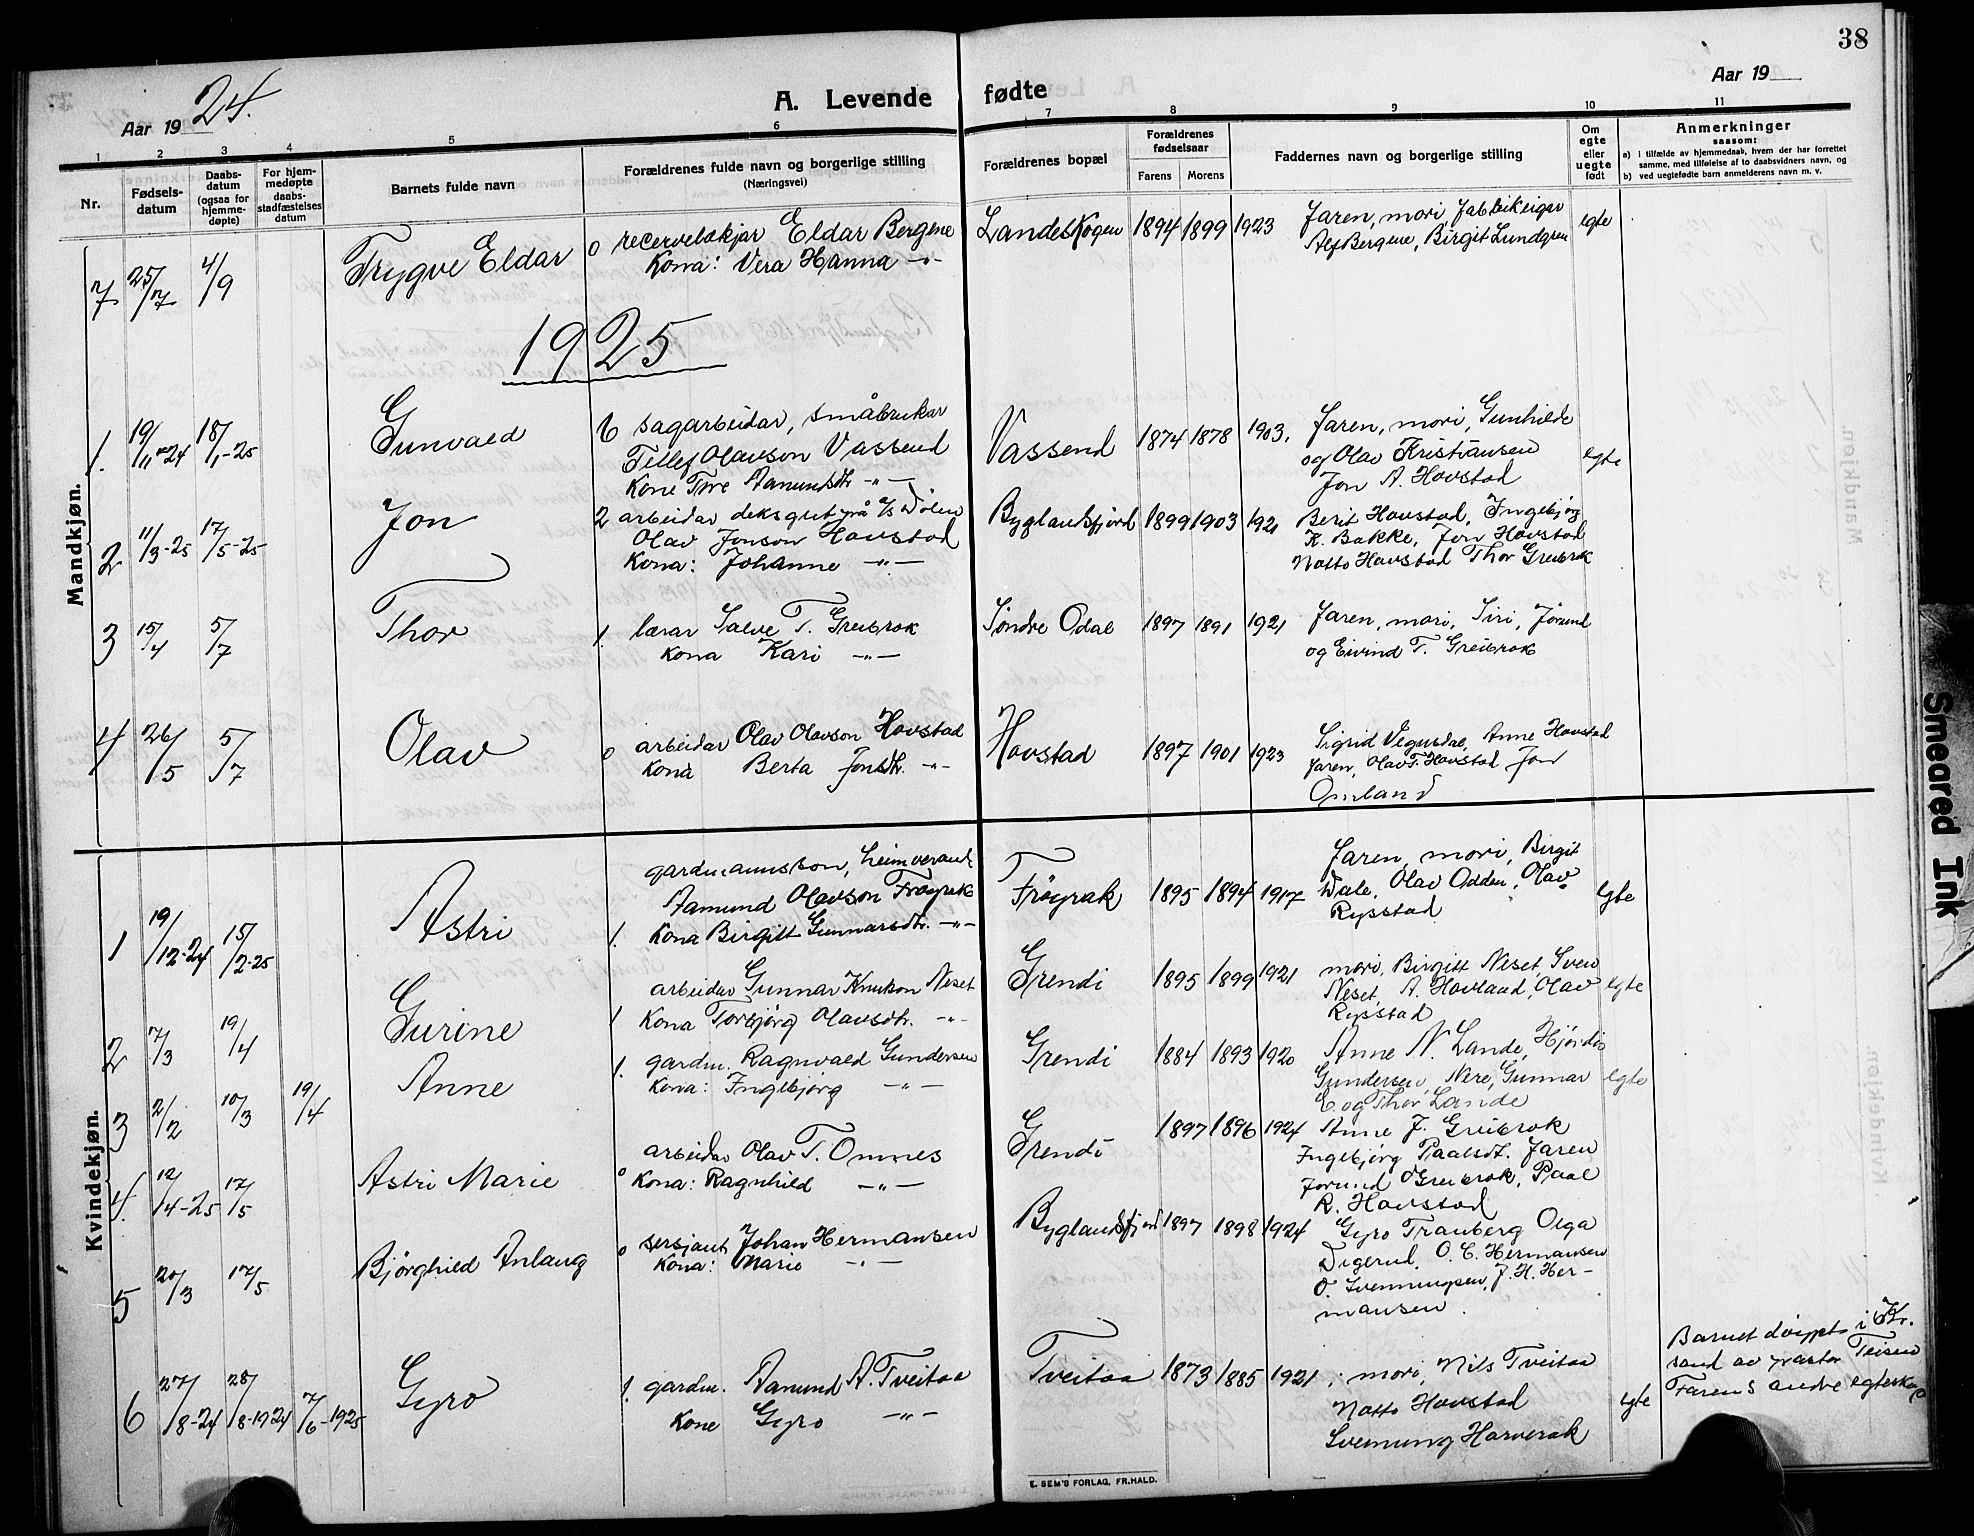 38
Aar 1924. A. Levende fødte Aar 19
1 2 3 4 5 6 7 8 9 10 11
Nr. Fødsels-datum Daabs-datum (ogsaa for hjemme-døpte) For hjem-medøpte daabs-stadfæstelses datum Barnets fulde navn Forældrenes fulde navn og borgerlige stilling (Næringsvei) Forældrenes bopæl Forældrenes fødselsaar Farens Morens Faddernes navn og borgerlige stilling Om egte eller uegte født Anmerkninger saasom:
a) i tilfælde av hjemmedaab, hvem der har forrettet samme, med tilføielse af to daabsvidners navn, og
b) ved uegtefødte barn anmelderens navn m. v.
Mandkjøn.
7 25/7 4/9 Trygve Eldar 0 recervelækjar Eldar Bergene Landeskogen 1894 1899 1923 Faren, mori, fabrikeigar egte
Kona: Vera Hanna -"- Alf Bergene, Birgit Lundgren
1925
1. 19/11-24 18/1-25 Gunvald 6 sagarbeidar, småbrukar Vassend 1874 1878 1903. Faren, mori, Gunhilde egte
Tellef Olavson Vassend og Olav Kristiansen
Kone Tore Aamundsdtr. -"- Jon A. Hovstad
2 11/3-25 17/5-25 Jon 2 arbeidar deksgut på D/S Dølen Byglandsfjord 1899 1903 1921 Berit Hovstad, Ingebjørg
Olav Jonson Hovstad K. Bakke, Jon Hovstad
Kona: Johanne -"- Notto Hovstad Thor Greibrok
3 15/4 5/7 Thor 1. lærar Salve T. Greibrok Søndre Odal 1897 1891 1921 Faren, mori, Siri, Jørund
Kona Kari -"- og Eivind T. Greibrok
4 26/5 5/7 Olav 0 arbeidar Olav Olavson Hovstad Hovstad 1897 1901 1923 Sigrid Vegusdal, Anne Hovstad
Kona Berta Jonsdtr. -"- Faren, Olav T. Hovstad Jon
Omland
Kvindekjøn.
1 19/12-24 15/2-25 Astri gardmannsson, heimverand Frøyrak 1895 1894 1917 Faren, mori, Birgit egte
Aamund Olavson Frøyrak Dale, Olav Odden, Olav
1. Kona Birgitt Gunnarsdtr. -"- Rysstad
2 7/3 19/4 Gurine arbeidar Gunnar Knutson Neset Grendi 1895 1899 1921 mori, Birgitt Neset, Sven egte
1 Kona Torbjørg Olavsdtr. -"- Neset, A. Hovland, Olav
Rysstad
3 2/2 10/3 19/4 Anne 1. gardm. Ragnvald Gundersen Grendi 1884 1893 1920 Anne N. Lande, Hjørdis egte
Kona: Ingebjørg -"- Gundersen, Nere, Gunnar
E. og Thor Lande
4. 12/4-25 17/5 Astri Marie 0 arbeidar Olav T. Omnes Grendi 1897 1896 1924 Anne J. Greibrok
Kona: Ragnhild -"- Ingebjørg Paalsdt. Faren
Jorund Greibrok, Paal
R. Hovstad
5 20/3 17/5 Bjørghild Anlaug 0 sersjant Johan Hermansen Byglandsfjord 1897 1898 1924 Gyro Trauberg Olga
Kona: Marie -"- Digerud, O. C. Hermansen
O. Svenningsen, J. H. Her-
mansen.
6 27/8-24 28/8-1924 7/6-1925 Gyro 1. gardm. Aamund A. Tveitaa Tveitaa 1873 1885 1921 mori, Nils Tveitaa egte Barnet døypt i Kr.
Kone Gyro -"- Notto Hovstad sand av pastor Teisen
Svenung Harverak Farens andre egteskap
E. SEM'S FORLAG. FR.HALD.
Smeared Ink